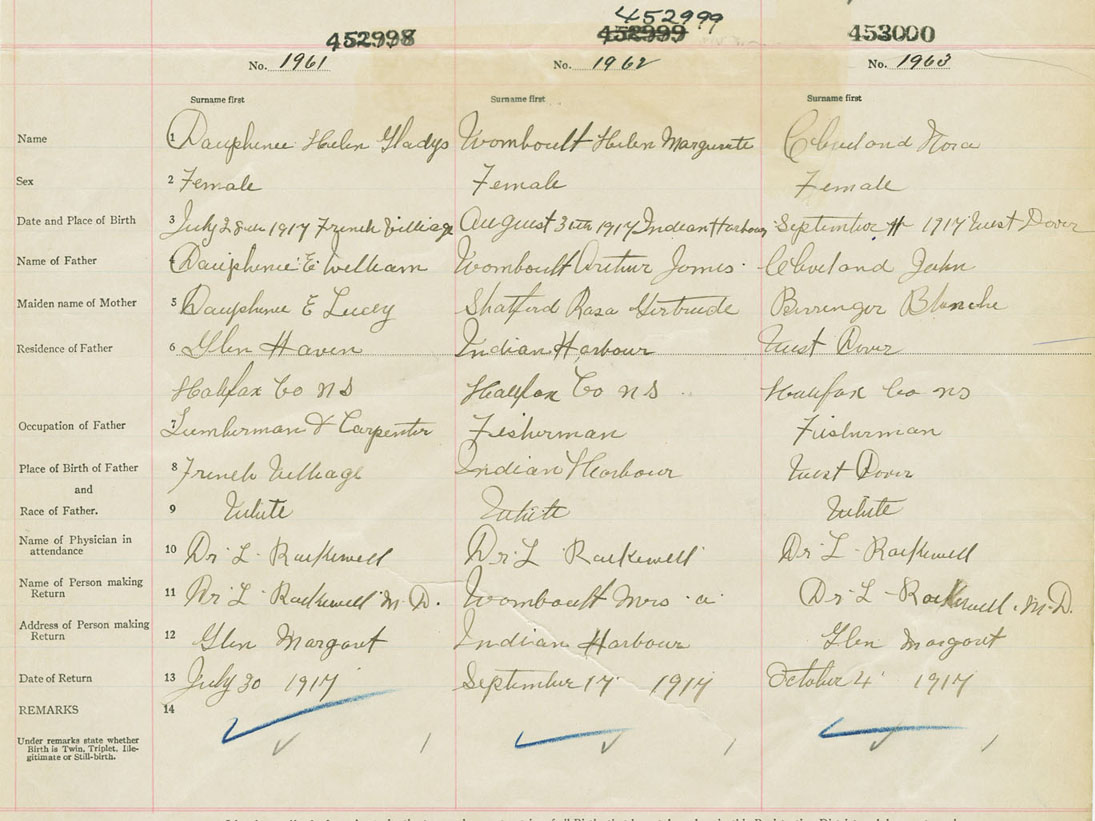 452999
452998 452999 453000
No. 1961 No. 1962 No. 1963
Surname first Surname first Surname first
Name 1 Dauphinee Helen Gladys Womboult Helen Marguerite Cleveland Nora
Sex 2 Female Female Female
Date and Place of Birth 3 July 28th 1917 French Village August 31th 1917 Indian Harbour September 1917 West Dover
Name of Father 4 Dauphinee E William Womboult Arthur James Cleveland John
Maiden name of Mother 5 Dauphinee E Lucey Shatford Rosa Gertrude Beringer Blanche
Residence of Father 6 Glen Haven Indian Harbour West Dover
Halifax Co NS Halifax Co NS Halifax Co NS
Occupation of Father 7 Lumberman & Carpenter Fisherman Fisherman
Place of Birth of Father 8 French Village Indian Harbour West Dover
and
Race of Father. 9 White White White
Name of Physician in
attendance 10 Dr. L. Rockwell Dr. L. Rockwell Dr. L. Rockwell
Name of Person making
Return 11 Dr. L. Rockwell M.D. Womboult Mrs. A Dr. L. Rockwell. M.D.
Address of Person making
Return 12 Glen Margaret Indian Harbour Glen Margaret
Date of Return 13 July 30 1917 September 17 1917 October 4 1917
REMARKS 14
Under remarks state whether
Birth is Twin, Triplet, Ille-
gitimate or Still-birth. 1 1 1